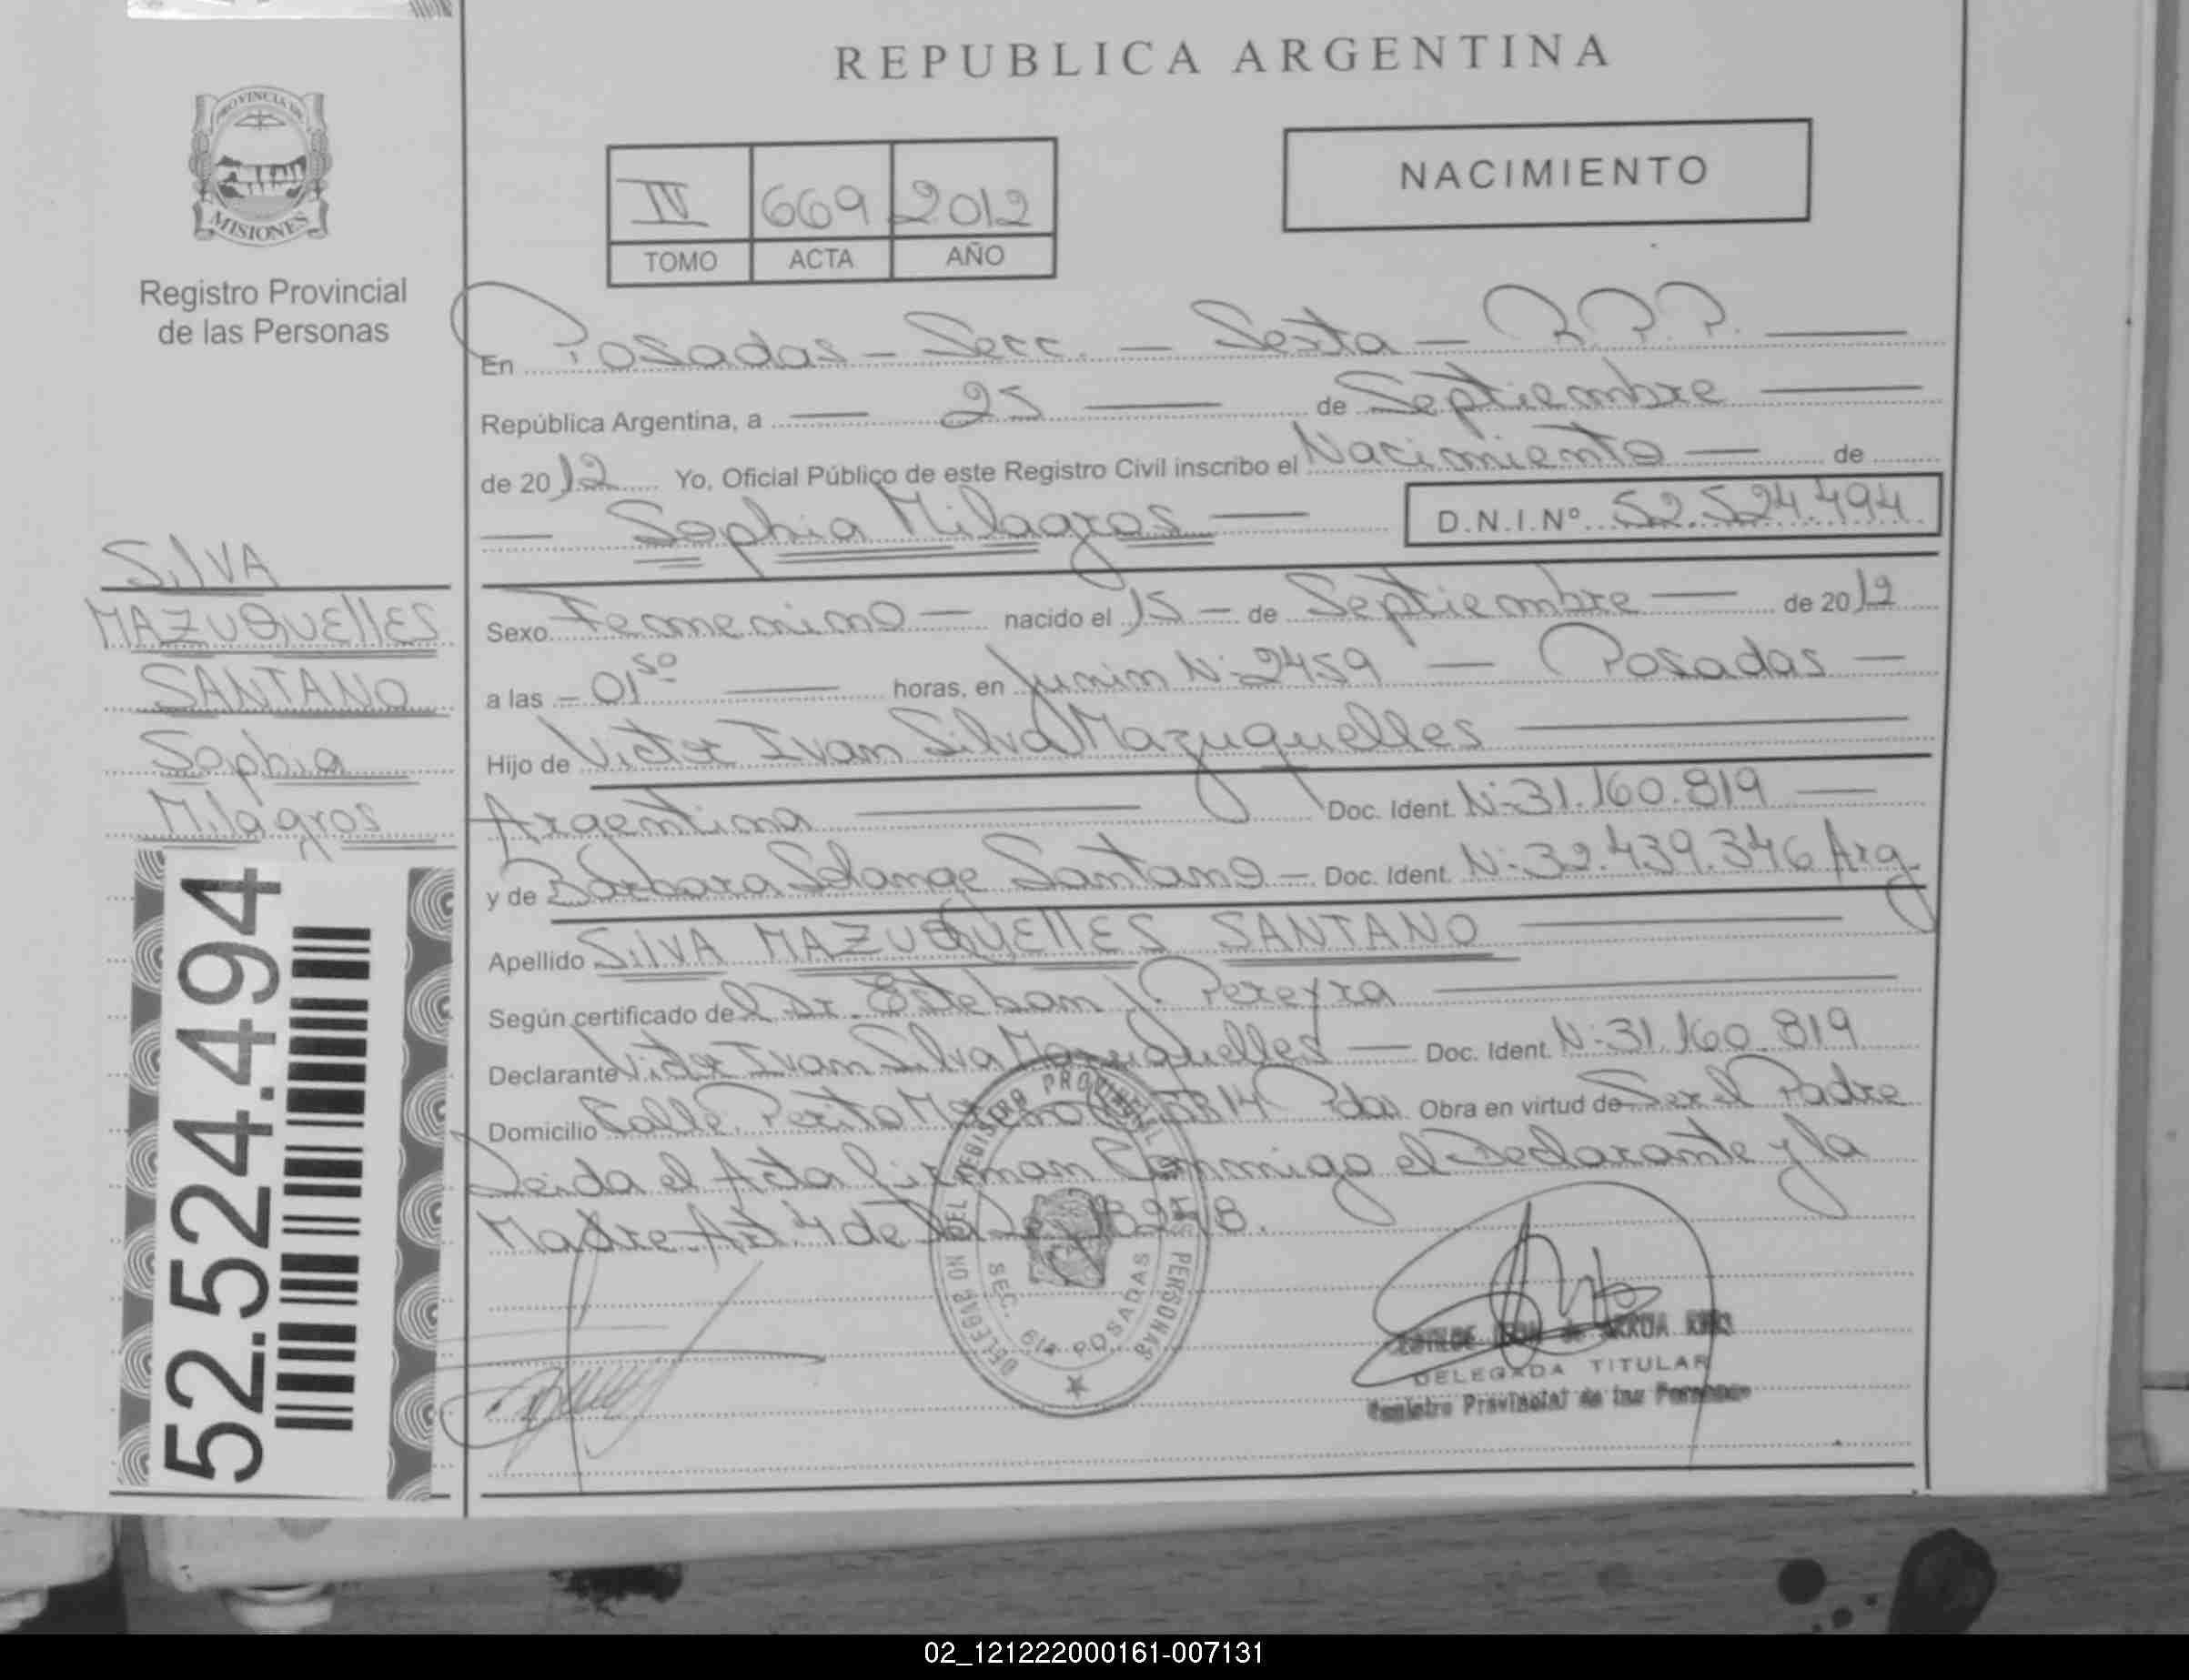 REPUBLICA ARGENTINA
PROVINCIA DE
MISIONES
Registro Provincial
de las Personas
IV 669 2012
TOMO ACTA AÑO
NACIMIENTO
En Posadas - Secc. - Sexta - R.P.P.
República Argentina, a - 25 - de Septiembre
de 2012 Yo, Oficial Público de este Registro Civil inscribo el Nacimiento - de
- Sophia Milagros - D.N.I.Nº 52.524.494
SilVA
MAZUQUEllES
SANTANO
Sophia
Milagros
52.524.494
Sexo Femenino - nacido el 15 - de Septiembre - de 2012
a las - 01 50 - horas, en Junin N: 2459 - Posadas -
Hijo de Victor Ivan Silva Mazuquelles
Argentina - Doc. Ident. N: 31.160.819 -
y de Bárbara Solange Santano - Doc. Ident. N: 32.439.346 Arg
Apellido SilVA MAZUQUEllES SANTANO
Según certificado del Dr. Esteban J. Pereyra
Declarante Victor Ivan Silva Mazuquelles - Doc. Ident. N: 31.160.819
Domicilio Calle. Perito Moreno 5814 Pdas Obra en virtud de Ser el Padre
Leida el Acta firman Conmigo el Declarante y la
Madre Art. 4 de la Ley 18248.
DELEGADO DEL REGISTRO PROVINCIAL DE LAS PERSONAS
SEC. 6ta POSADAS
DE ARRUA
DELEGADA TITULAR
Registro Provincial de las Personas
02_121222000161-007131